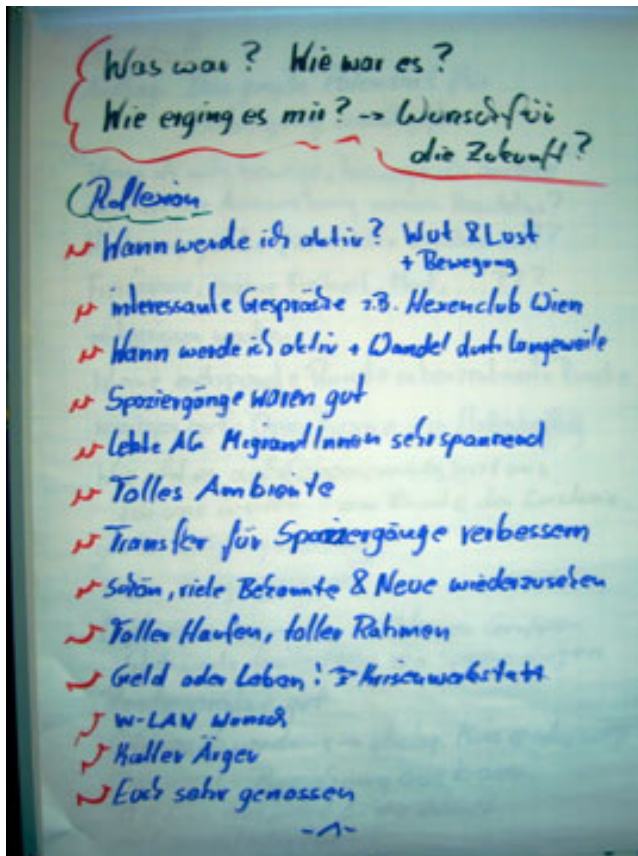 Was war? Wie war es?
Wie erging es mir? → Wunsch für
die Zukunft?
Reflexion
Wann werde ich aktiv? Wut & Lust
+ Bewegung
interessante Gespräche z.B. Hexenclub Wien
Wann werde ich aktiv + Wandel durch Langeweile
Spaziergänge waren gut
letzte AG MigrantInnen sehr spannend
Tolles Ambiente
Transfer für Spaziergänge verbessern
Schön, viele Bekannte & Neue wiederzusehen
Toller Haufen, toller Rahmen
Geld oder Leben! → Krisenwerkstatt
W-LAN Wunsch
Kalter Ärger
Euch sehr genossen
-1-